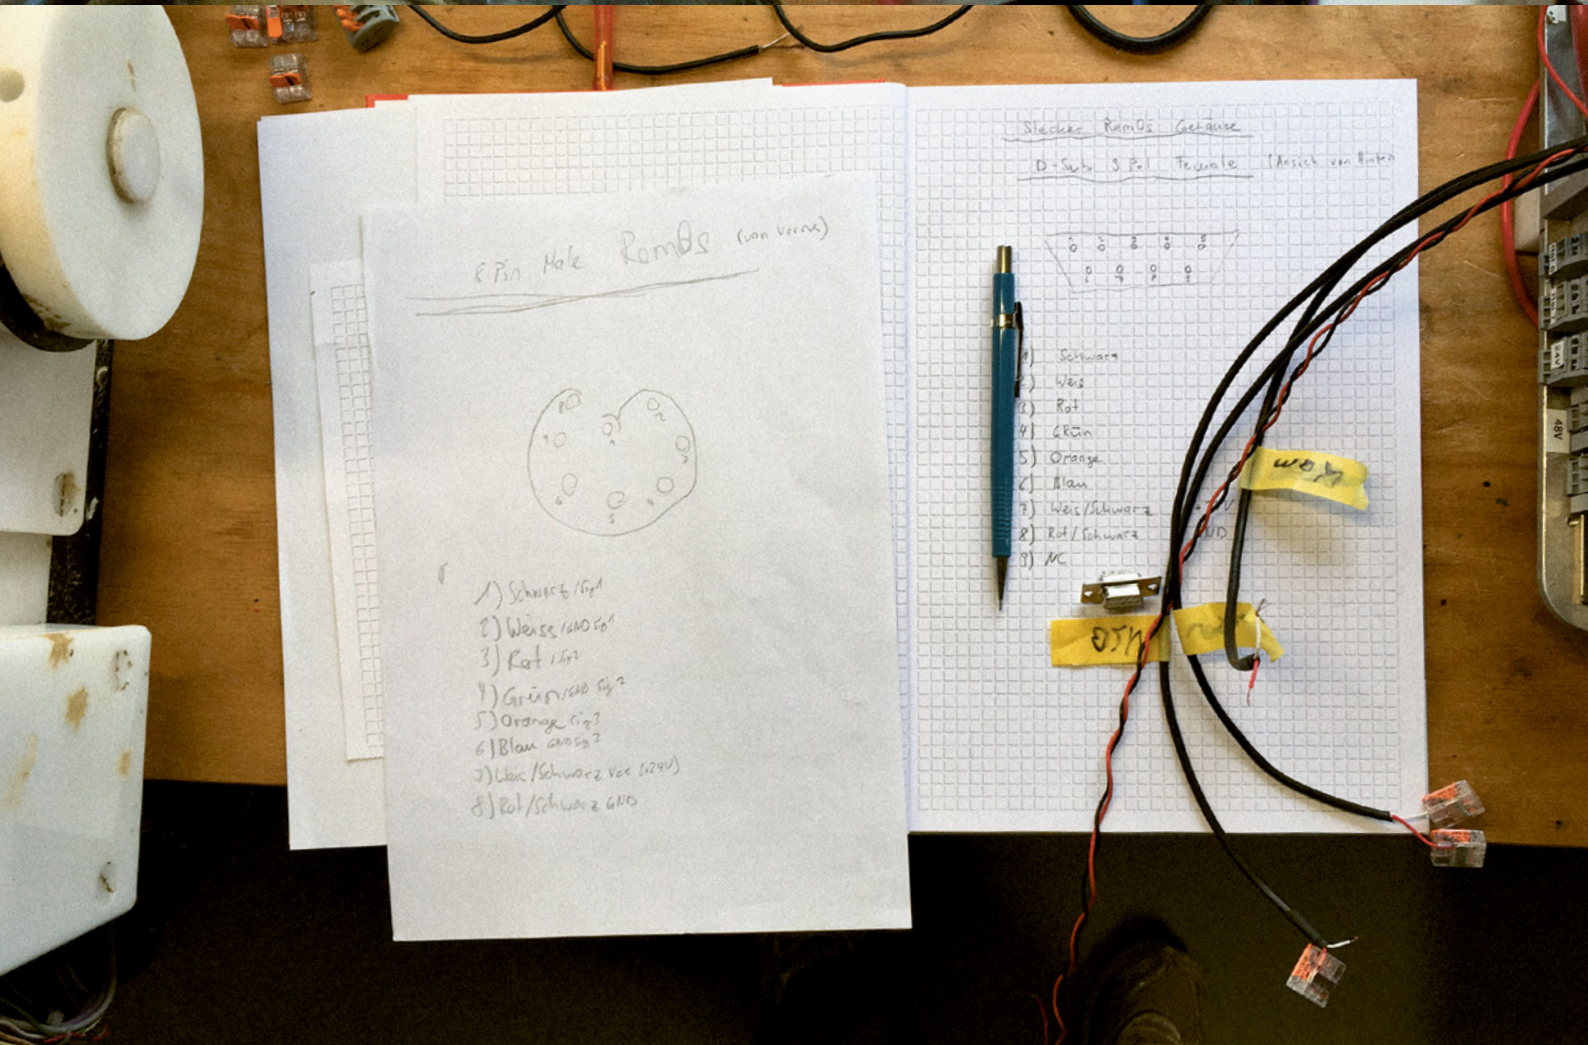 8 Pin Male RamOs (von vorne)
1) Schwarz/Sig1
2) Weiss/GND Sig1
3) Rot/Sig2
4) Grün/GND Sig2
5) Orange Sig3
6) Blau GND Sig3
7) Weis/Schwarz Vcc (+24V)
8) Rot/Schwarz GND
Stecker RamOs Gehäuse
D-Sub 9 Pol Female (Ansich von Hinten
1) Schwarz
2) Weis
3) Rot
4) GRün
5) Orange
6) Blau
7) Weis/Schwarz
8) Rot/Schwarz GND
9) NC
24V
48V